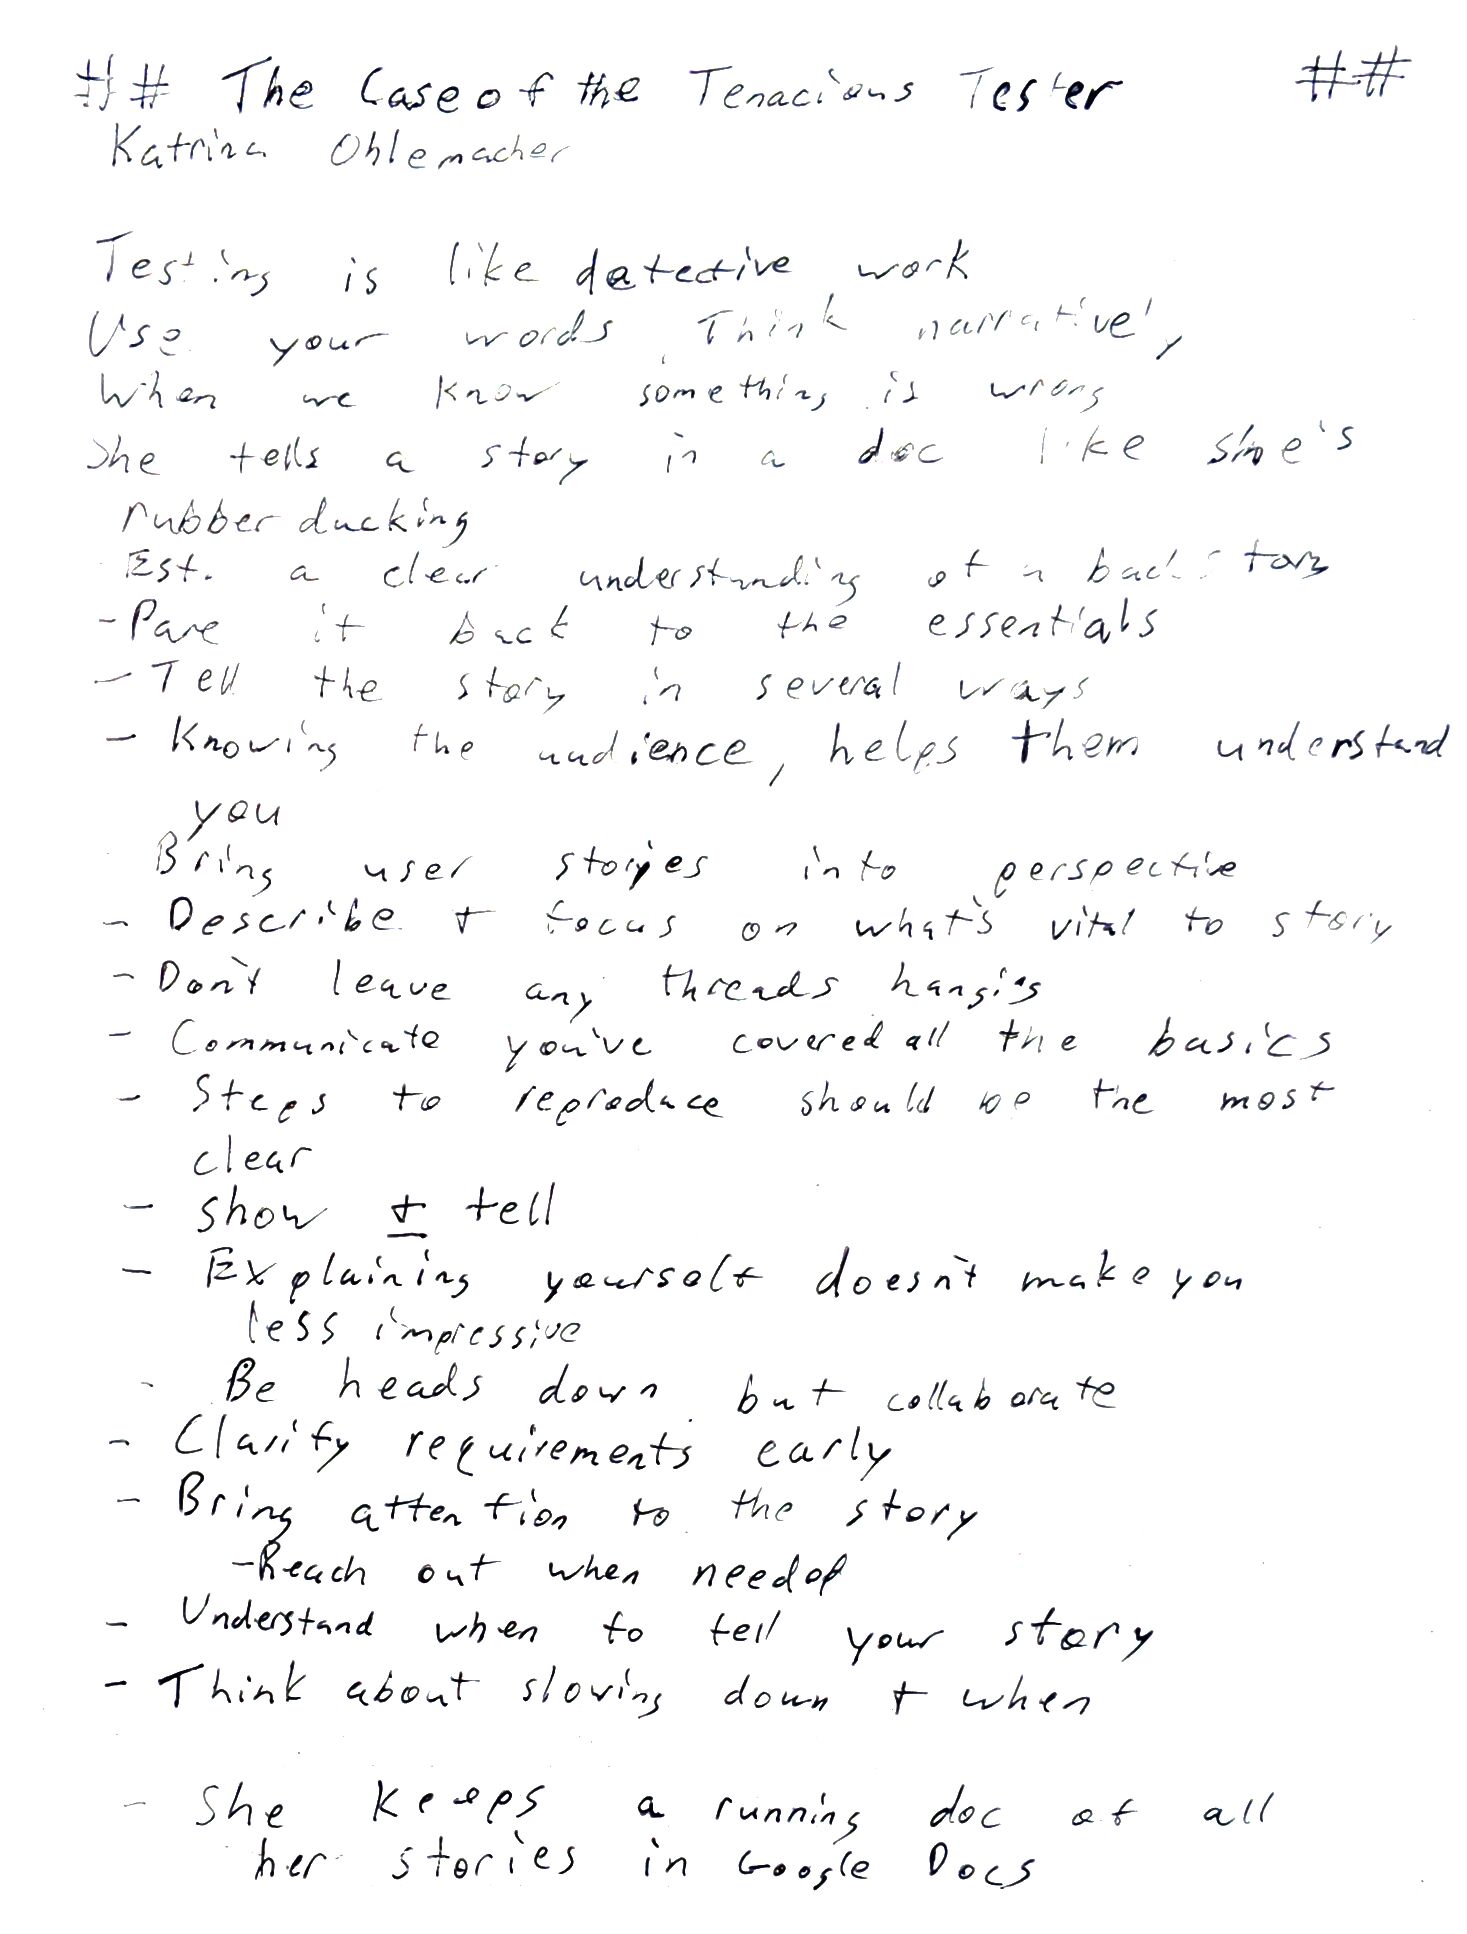 ## The Case of the Tenacious Tester ##
Katrina Ohlemacher
Testing is like detective work
Use your words. Think narratively
When we know something is wrong
She tells a story in a doc like she's
rubber ducking
- Est. a clear understanding of a backstory
- Pare it back to the essentials
- Tell the story in several ways
- Knowing the audience, helps them understand
you
Bring user stories into perspective
- Describe + focus on what's vital to story
- Don't leave any threads hanging
- Communicate you've covered all the basics
- Steps to reproduce should be the most
clear
- show + tell
- Explaining yourself doesn't make you
less impressive
- Be heads down but collaborate
- Clarify requirements early
- Bring attention to the story
- Reach out when needed
- Understand when to tell your story
- Think about slowing down + when
- She keeps a running doc of all
her stories in Google Docs